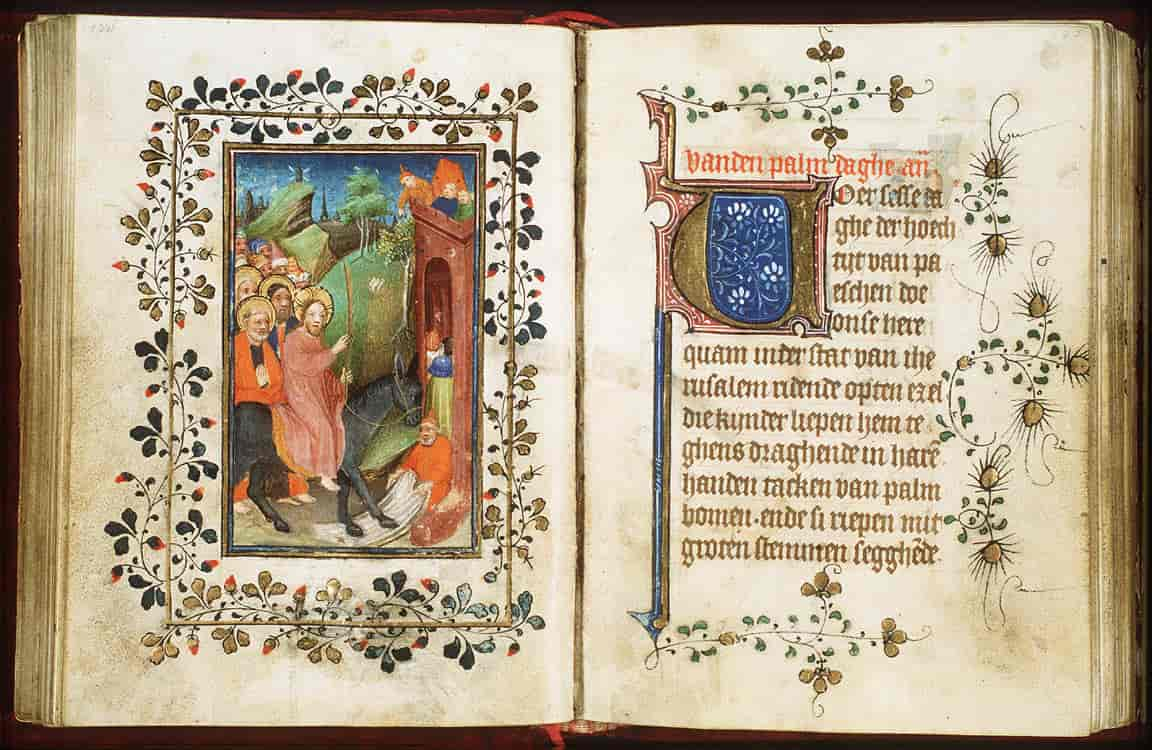 vanden palm daghe an̄
Voer sesse da
ghe der hoech
tijt van pa
eschen doe
onse here
quam inder stat van ihe
rusalem ridende opten ezel
die kijnder liepen hem te
ghens draghende in harē
handen tacken van palm
bomen. ende si riepen mit
groten stemmen segghēde.